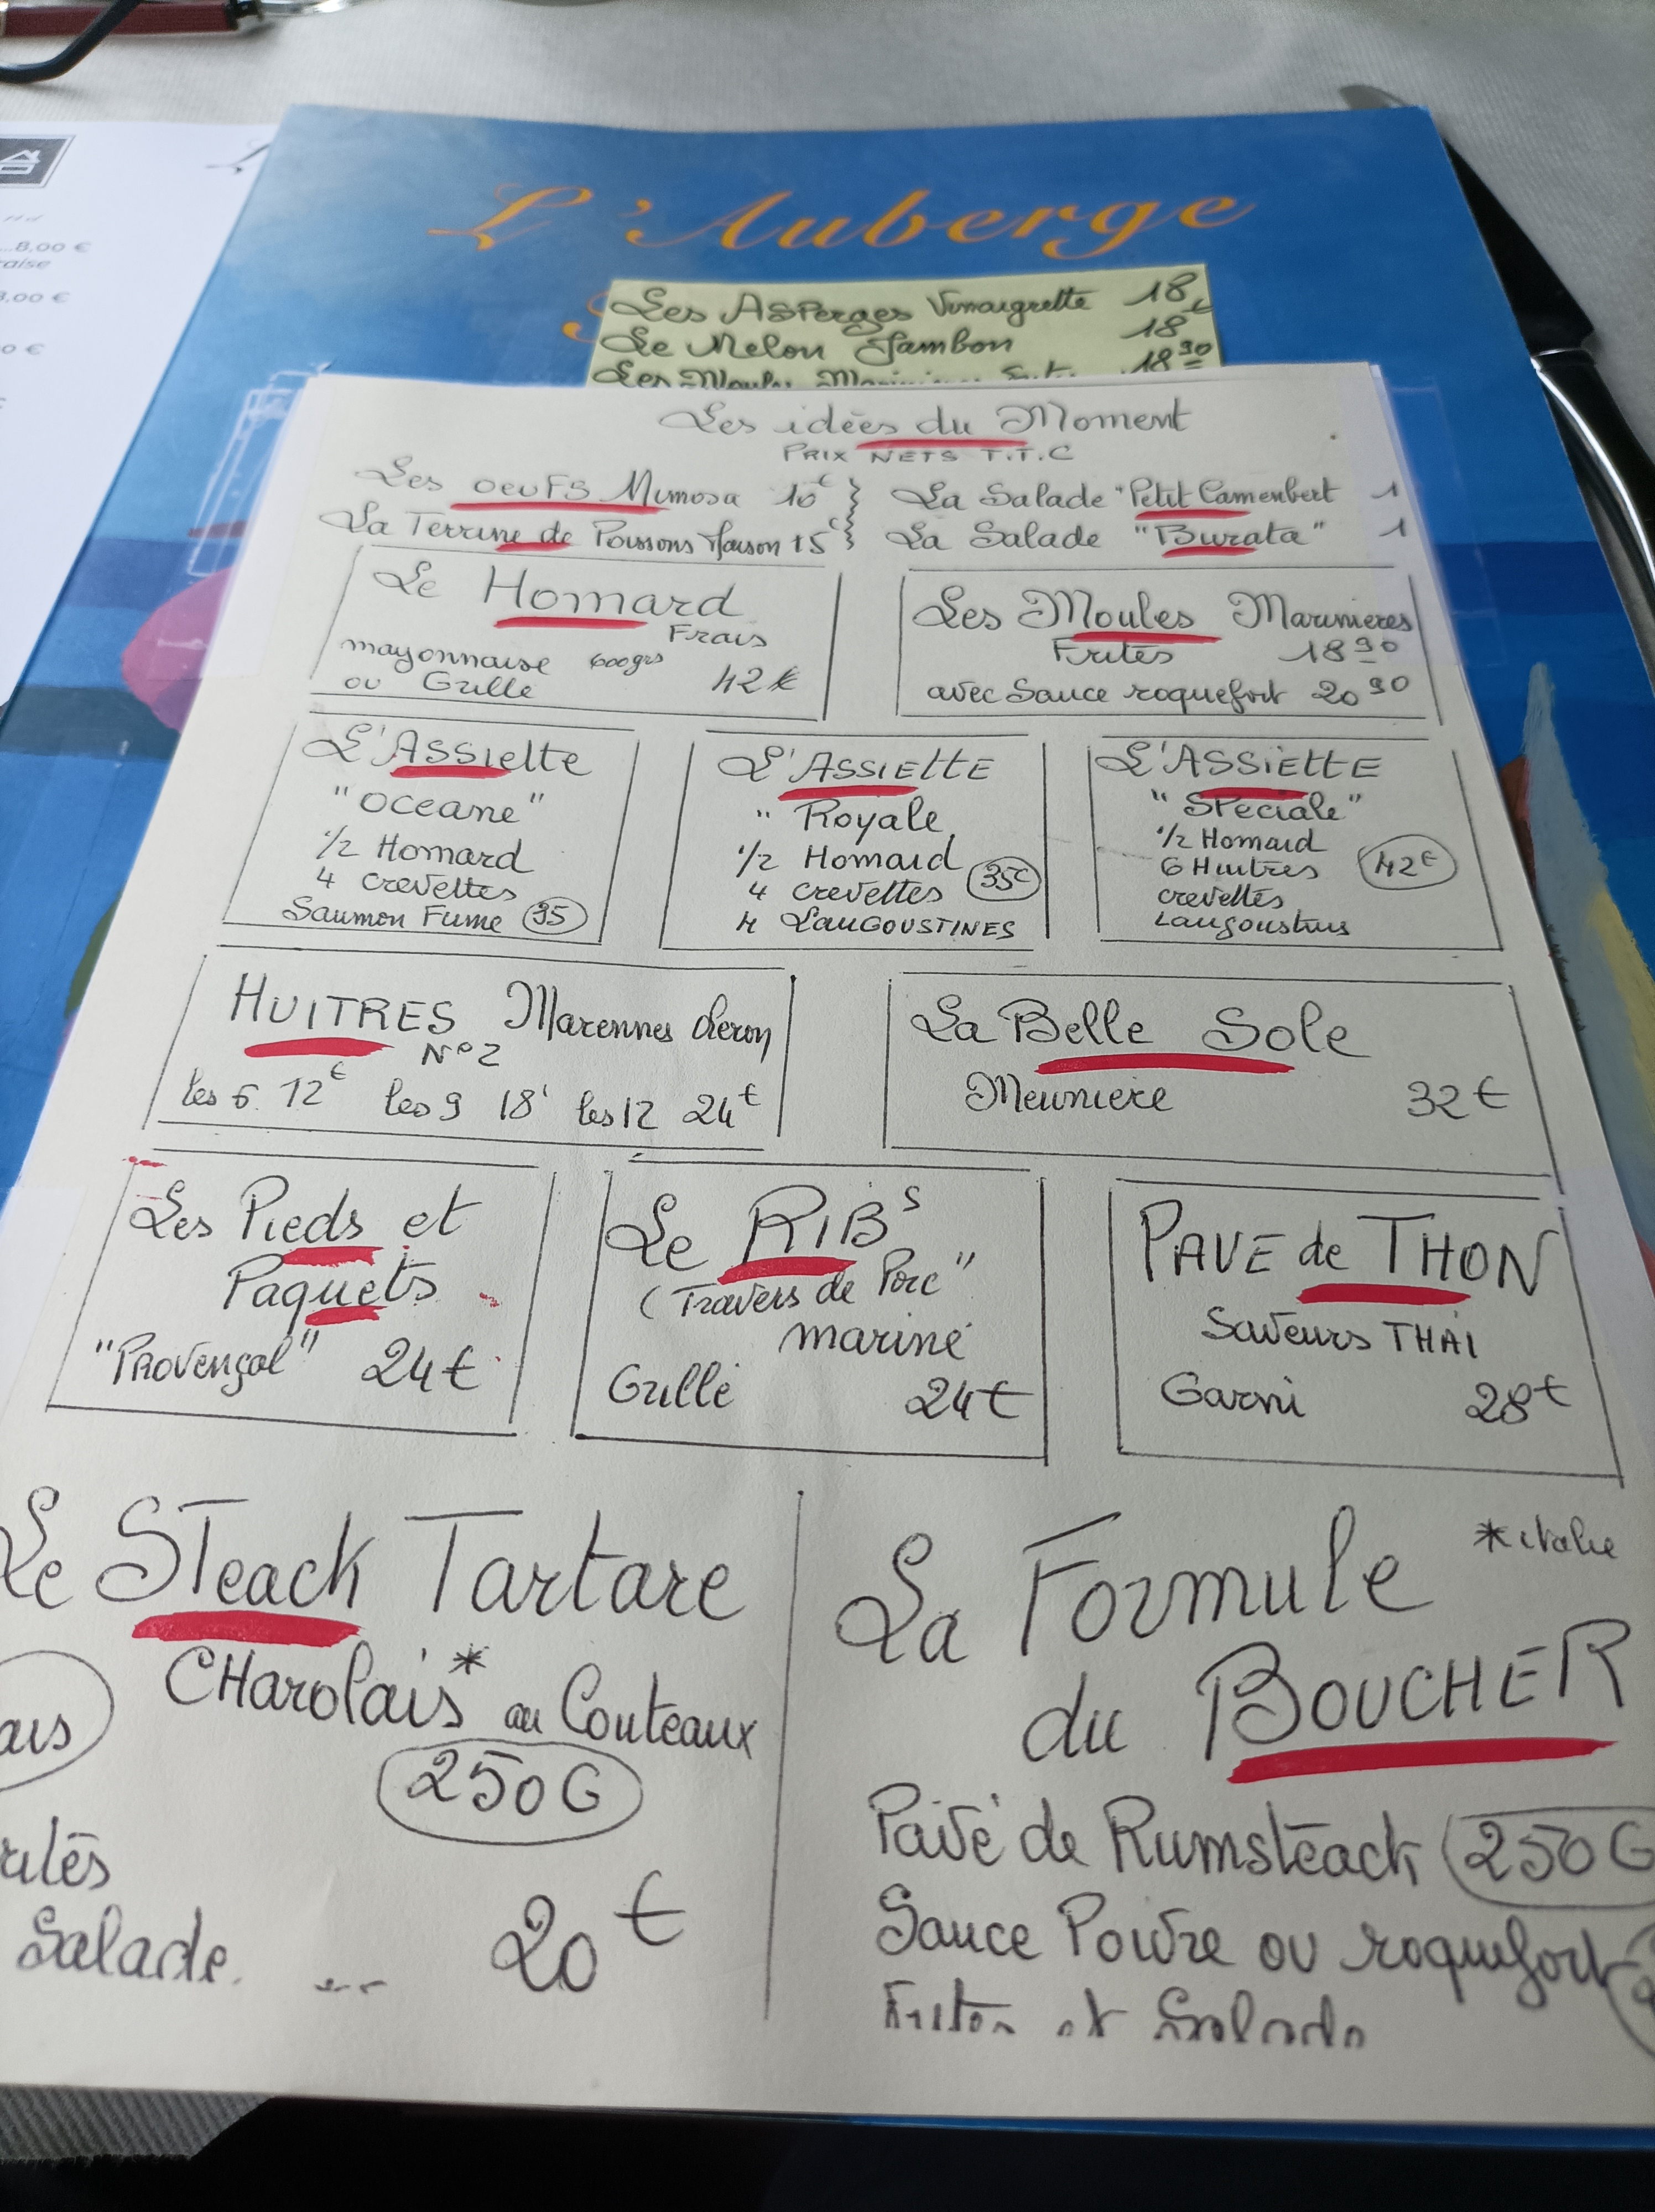 8,00 €
raise
8,00 €
0 €
L'Auberge
Les Asperges Vinaigrette 18€
Le Melon Jambon 18
Les Moules 18 90
Les idées du Moment
PRIX NETS T.T.C
Les oeuFS Mimosa 10€
La Terrine de Poissons Maison 15€
La Salade "Petit Camenbert 1
La Salade "Burata" 1
Le Homard
Frais
mayonnaise 600grs
ou Grille 42€
Les Moules Marinieres
Frites 18 90
avec Sauce roquefort 20 90
L'ASSIette
"Oceane"
1/2 Homard
4 crevettes
Saumon Fume 35
L'ASSIETTE
"Royale
1/2 Homard
4 crevettes 35€
4 LANGOUSTINES
L'ASSIETTE
"SPeciale"
1/2 Homard
6 Huitres 42€
crevettes
Langoustines
HUITRES Marennes oleron
N°2
les 6 12€ les 9 18' les 12 24€
La Belle Sole
Meuniere 32€
Les Pieds et
Paquets
"Provençal" 24€
Le RIBs
(Travers de Porc"
mariné
Grillé 24€
PAVE de THON
Saveurs THAI
Garni 28€
Le STeack Tartare
CHarolais* au Couteaux
250G
Salade. 20€
La Formule
du BOUCHER
Pavé de Rumsteack 250G
Sauce Poivre ou roquefort
Frites et Salade